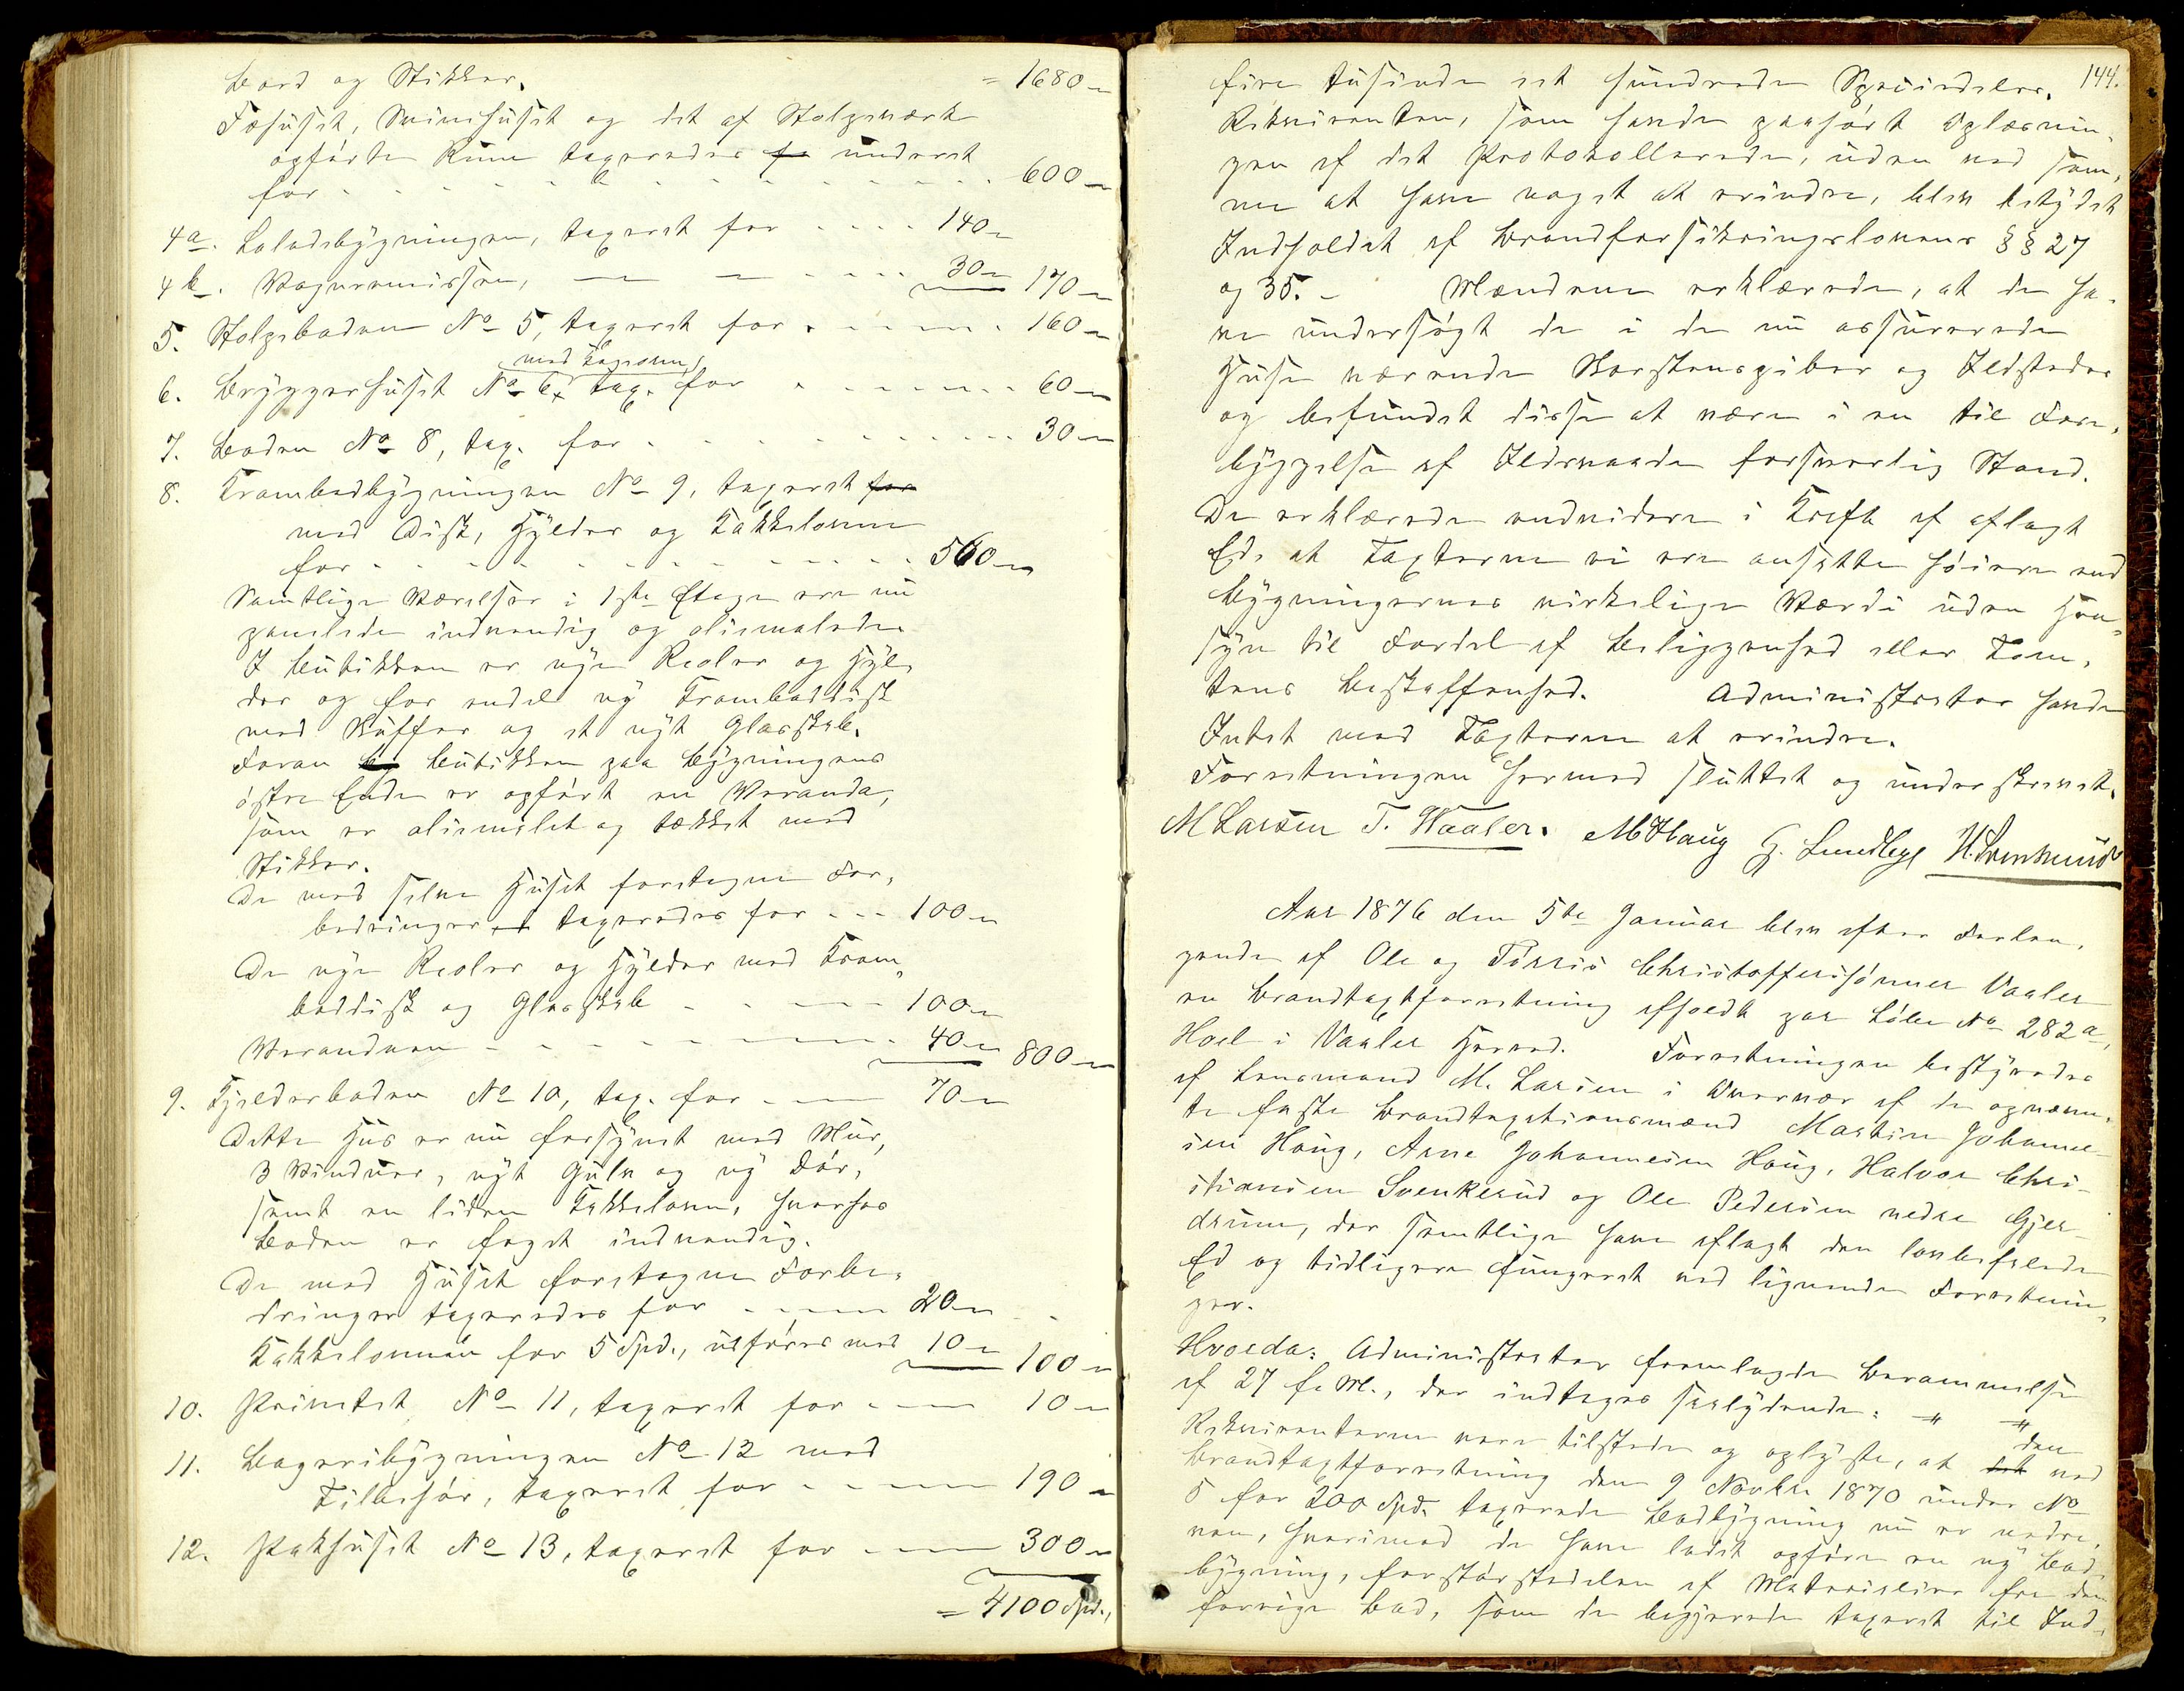 Bord og Stikker. = 1680 "
Fæhuset, Svinehuset og det af Stolpeværk
opførte Rum taxeredes fo underet
for . . . . . . . . . . . . . 600 "
4a. Ladebygningen, taxeret for . . . . 140 "
4b. Vognremissen, — — . . . . 30 " 170 "
5. Stolpeboden No 5, taxeret for . . . . . 160 "
med Bagerovn
6. Bryggerhuset No 6, tax. for . . . . . . . 60 "
7. Boden No 8, tax. for . . . . . . . . . 30 "
8. Krambodbygningen No 9, taxeret for
med Disk, Hylder og Kakkelovne
for . . . . . . . . . . . . . 560 "
Samtlige Værelser i 1ste Etage ere nu
panelede indvendig og oliemalede.
I Butikken er nye Reoler og Hyl-
der og for endel ny Kramboddisk
med Skuffer og et nyt Glasskab.
Foran by Butikken paa Bygningens
østre Ende er opført en Veranda,
som er oliemalet og tækket med
Stikker.
De med selve Huset foretagne For-
bedringer et taxeredes for . . . 100 "
De nye Reoler og Hylder med Kram-
boddisk og Glasskab . . . . . 100 "
Verandaen . . . . . . . . . 40 " 800 "
9. Fjelderboden No 10, tax. for . . . 70 "
Dette Hus er nu forsynet med Mur,
3 Vinduer, nyt Gulv og ny Dør,
samt en liden Kakkelovn, hvorhos
Boden er faget indvendig.
De med Huset foretagne Forbe-
dringer taxeredes for . . . . 20 "
Kakkelovnen for 5 Spd., udføres med 10 " 100 "
10. Privetet No 11, taxeret for . . . 10 "
11. Bageribygningen No 12 med
Tilbehør, taxeret for . . . . . 190 "
12. Pakhuset No 13, taxeret for . . . 300 "
= 4100 Spd.,
144.
fire tusinde et hundrede Speciedaler.
Rekvirenten, som havde paahørt Oplæsnin-
gen af det Protokollerede, uden ved sam-
me at have noget at erindre, blev betydet
Indholdet af Brandforsikringslovens §§ 27
og 35. - Mændene erklærede, at de ha-
ve undersøgt de i de nu assurerede
Huse værende Skorstenspiber og Ildsteder
og befundet disse at være i en til Fore-
byggelse af Ildsvaade forsvarlig Stand.
De erklærede endvidere i Kraft af aflagt
Ed, at Taxterne ei ere ansatte høiere end
Bygningernes virkelige Værdi uden Hen-
syn til Fordel af Beliggenhed eller Tom-
tens Beskaffenhed. Administrator havde
Intet mod Taxterne at erindre.
Forretningen hermed sluttet og underskrevet.
M Larsen T. Waaler. M J Haug G. Lundbye H. Svenkerud
Aar 1876 den 5te Januar blev efter Forlan-
gende af Ole og Thorris Christofferssønner Vaaler
en Brandtaxtforretning afholdt paa Løbe No 282a,
Hoel i Vaaler Herred. Forretningen bestyredes
af Lensmand M. Larsen i Overvær af de opnævn-
te faste Brandtaxationsmænd Martin Johanne-
sen Haug, Arne Johannesen Haug, Halvor Chri-
stiansen Svenkerud og Ole Pedersen nedre Gjer-
drum, der samtlige have aflagt den lovbefalede
Ed og tidligere fungeret ved lignende Forretnin-
ger.
Hvoeda: Administrator fremlagde Berammelse
af 27 f. M., der indtages saalydende: " "
Rekvirenterne vare tilstede og oplyste, at det den ved
Brandtaxtforretning den 9 Novbr 1870 under No
5 for 200 Spd. taxerede Bodbygning nu er nedre-
ven, hvorimod de have ladet opføre en ny Bod-
bygning, for størstedelen af Materialier fra den
forrige Bod, som de begjærede taxeret til Ind-